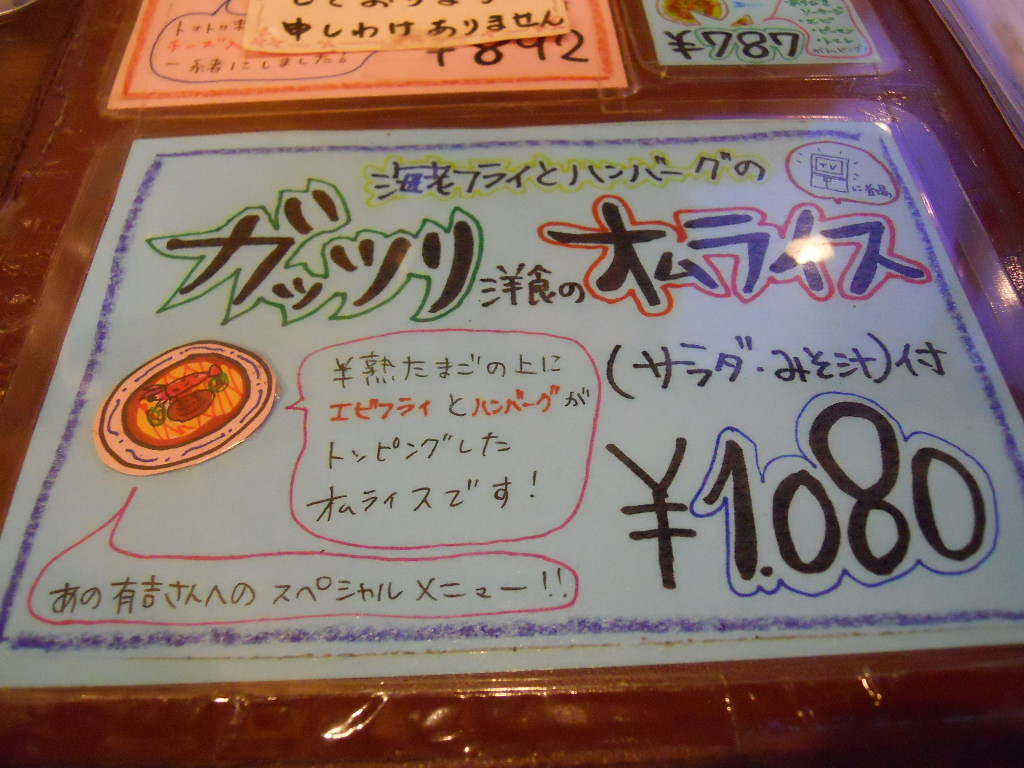 しております
申しわけありません
トマト
チーズ入
一緒にしました。
¥892
¥787
がトッピング
海老フライとハンバーグの
TV
に登場
ガッツリ洋食のオムライス
半熟たまごの上に
エビフライとハンバーグが
トッピングした
オムライスです!
(サラダ・みそ汁)付
¥1.080
あの有吉さんへのスペシャルメニュー!!